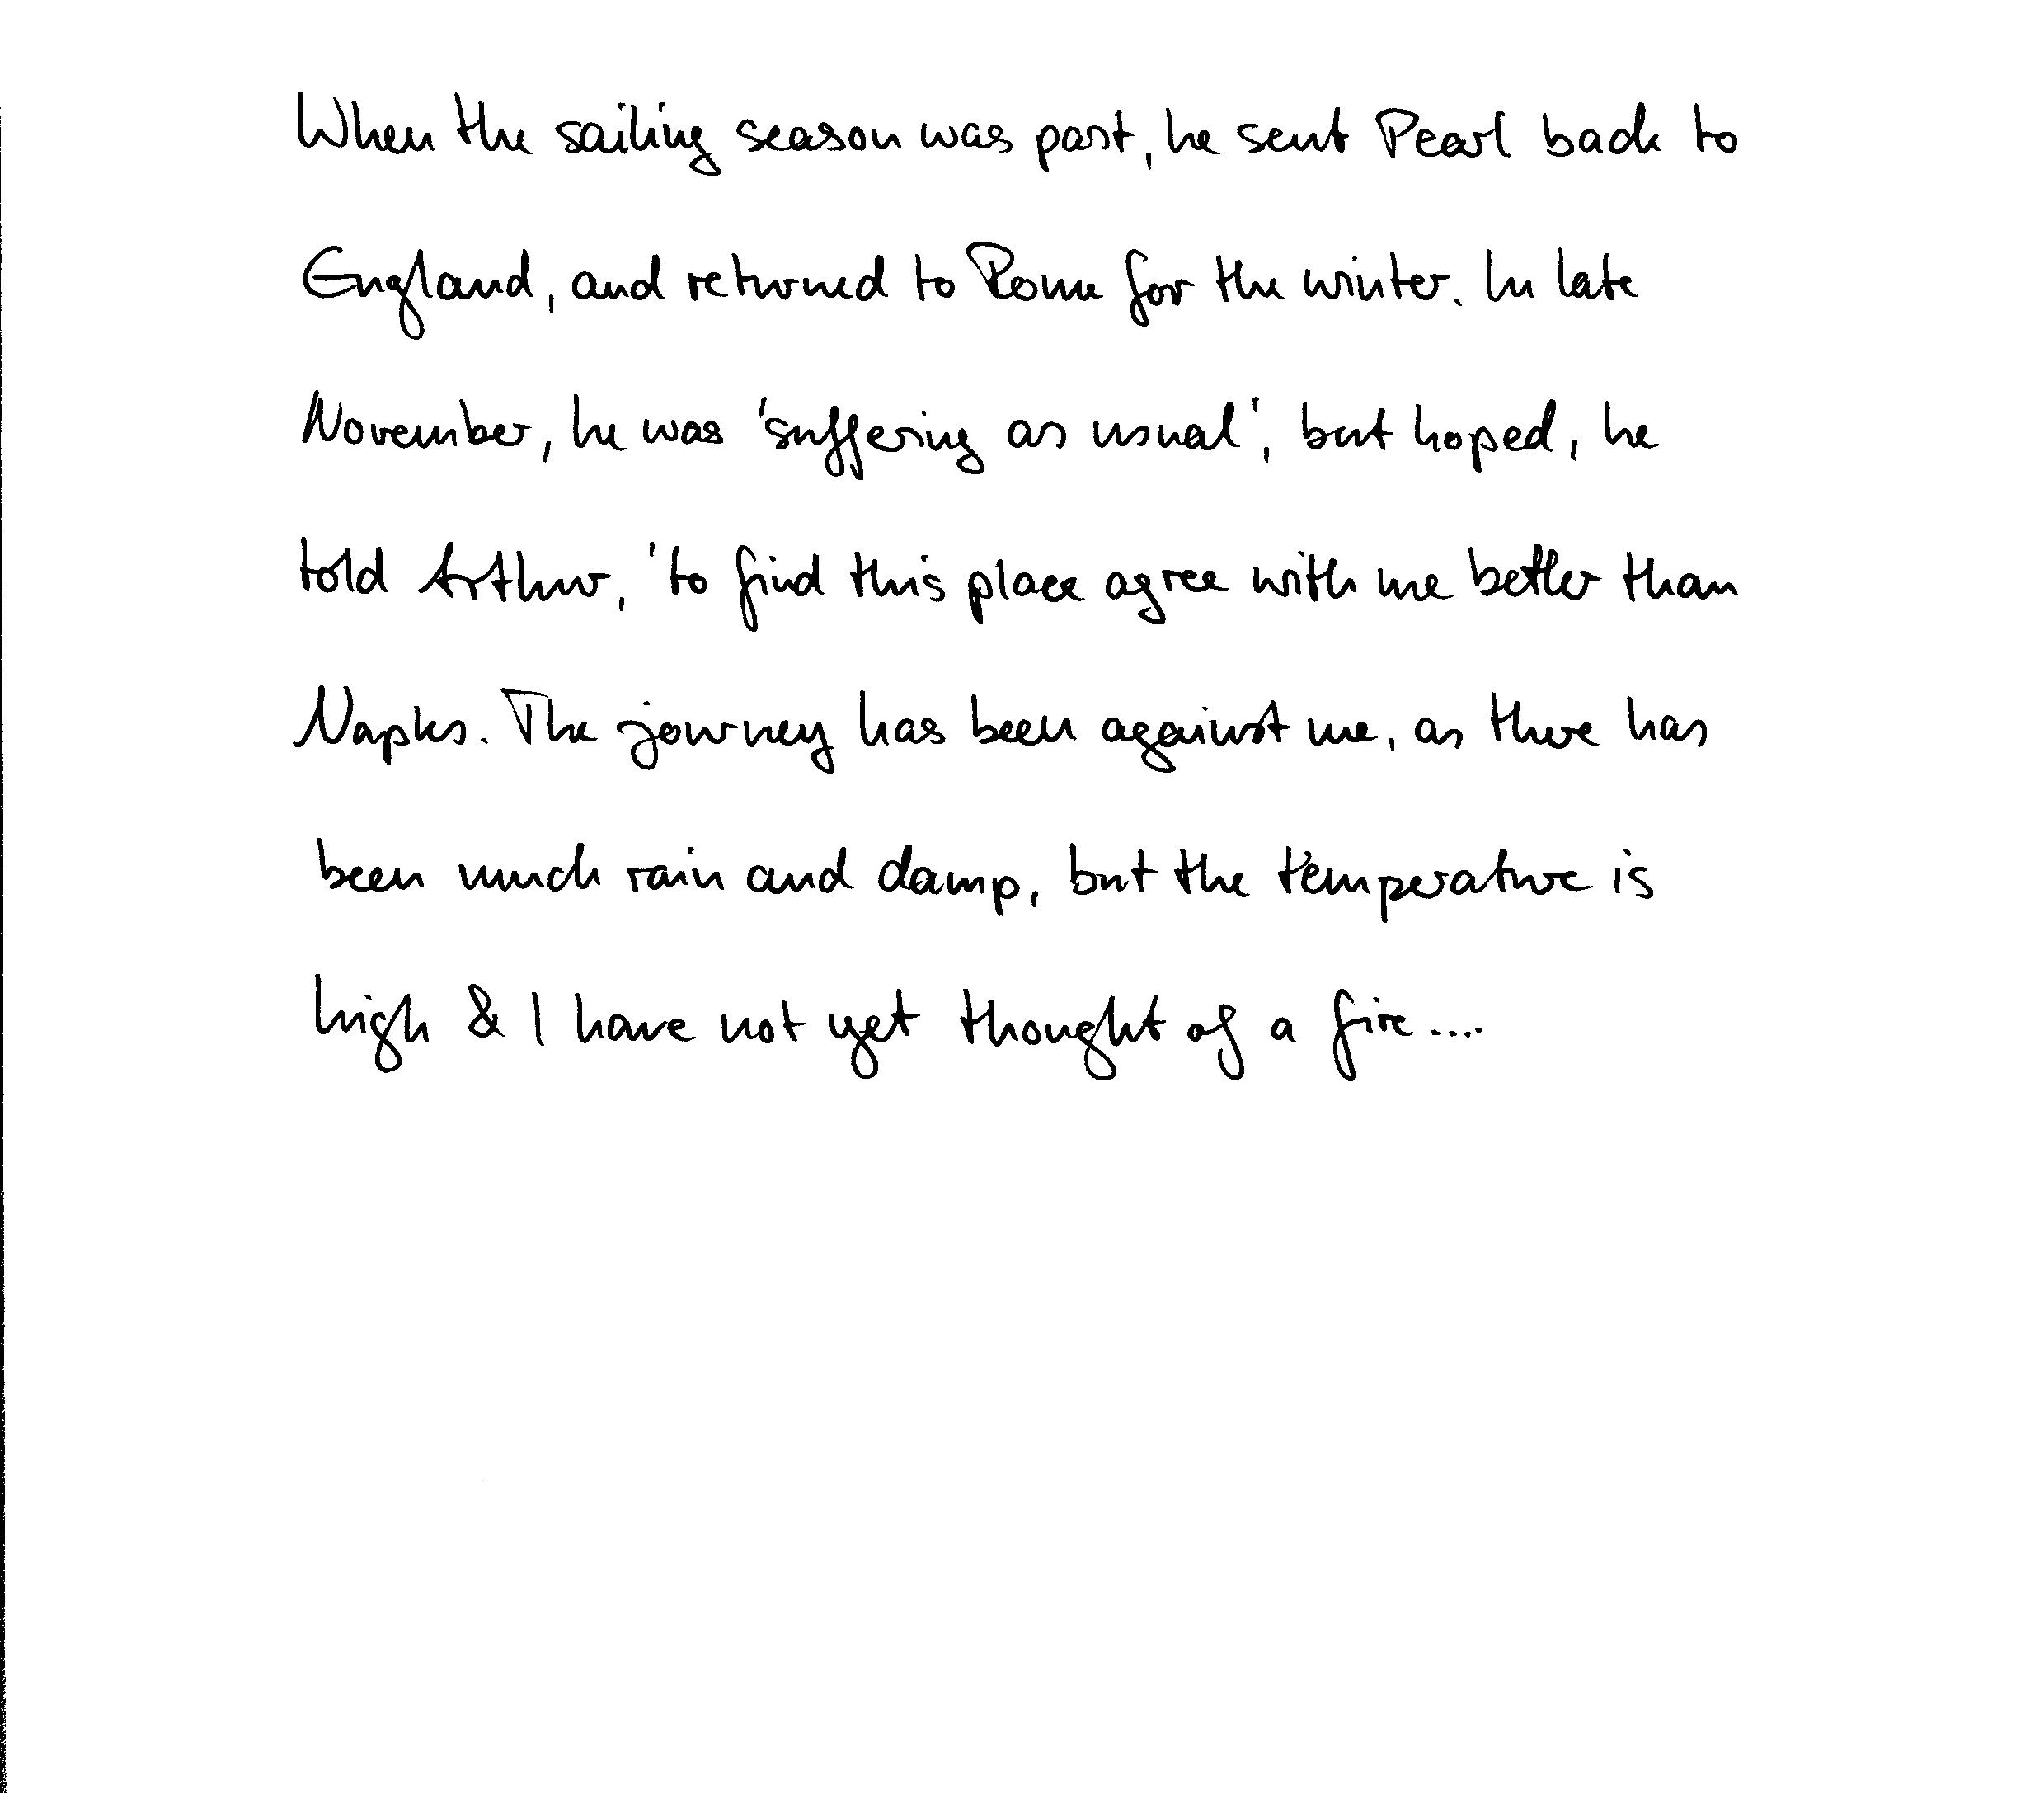 When the sailing season was past, he sent Pearl back to
England, and returned to Rome for the winter. In late
November, he was 'suffering as usual', but hoped, he
told Arthur, 'to find this place agree with me better than
Naples. The journey has been against me, as there has
been much rain and damp, but the temperature is
high & I have not yet thought of a fire....